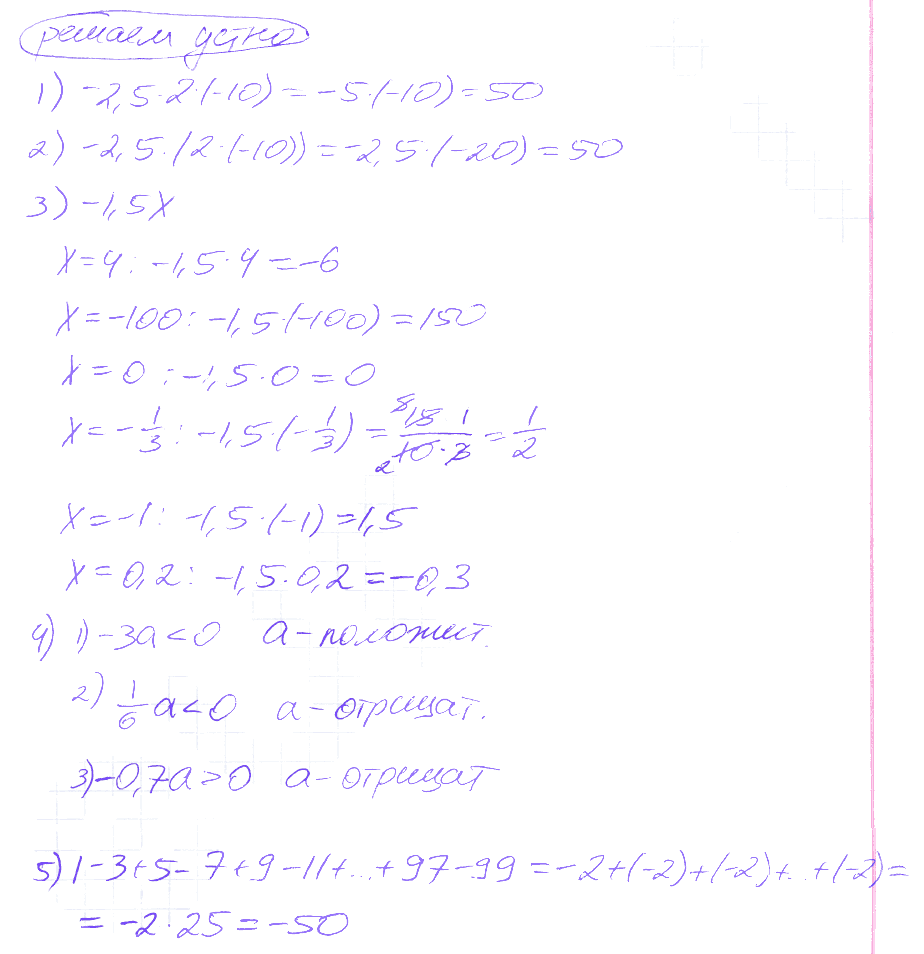 решаем устно
1) -2,5·2·(-10) = -5·(-10) = 50
2) -2,5·(2·(-10)) = -2,5·(-20) = 50
3) -1,5x
x=4: -1,5·4 = -6
x=-100: -1,5·(-100) = 150
x=0: -1,5·0 = 0
x=-1/3: -1,5·(-1/3) = 15·1/10·3 = 1/2
x=-1: -1,5·(-1) = 1,5
x=0,2: -1,5·0,2 = -0,3
4) 1) -3a<0 a - положит.
2) 1/6 a<0 a - отрицат.
3) -0,7a>0 a - отрицат
5) 1-3+5-7+9-11+...+97-99 = -2+(-2)+(-2)+...+(-2) =
= -2·25 = -50